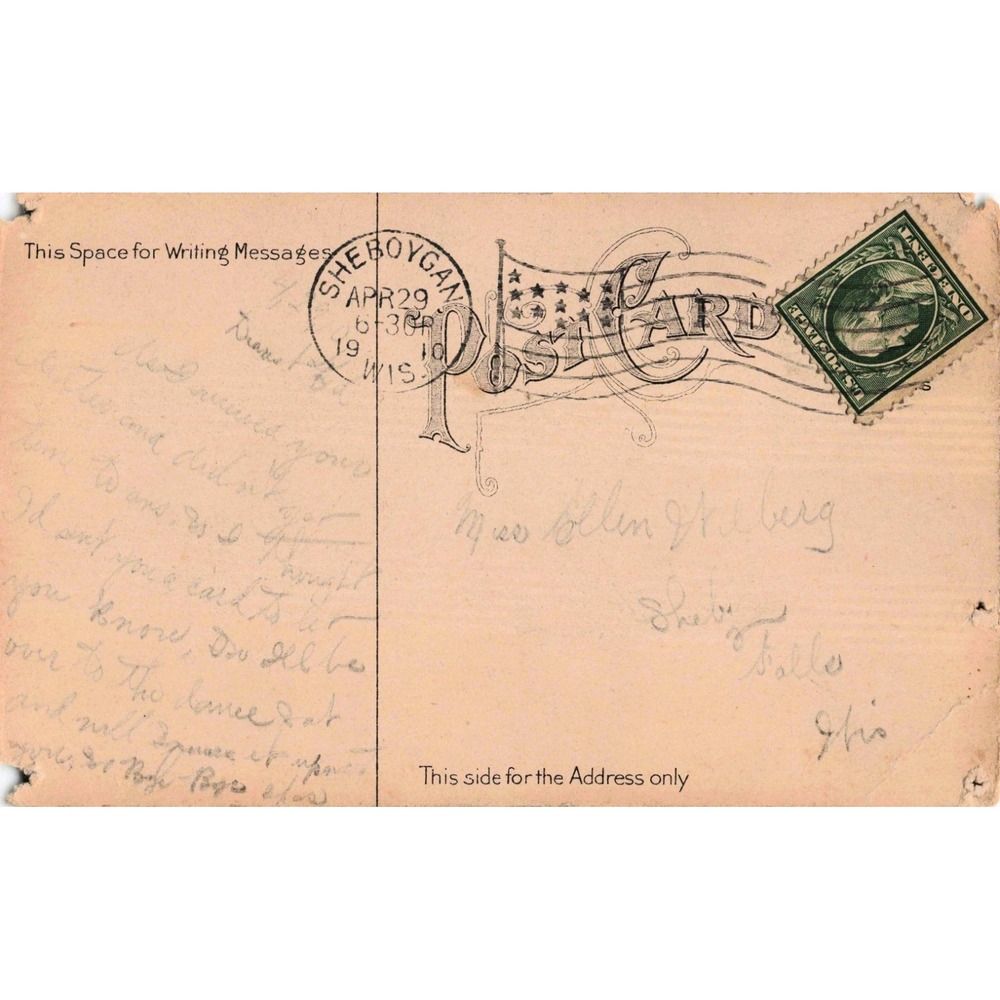 This Space for Writing Messages
SHEBOYGAN
APR 29
6-30P
19 10
WIS.
POST CARD
U.S. POSTAGE
ONE CENT
Dear
received yours
and didn't get
time to ans, so I thought
I'd send you a card to let
you know, I'll be
over to the dance Sat
and will
Bye Bye
Miss Ellen
Sheby
Falls
Wis
This side for the Address only